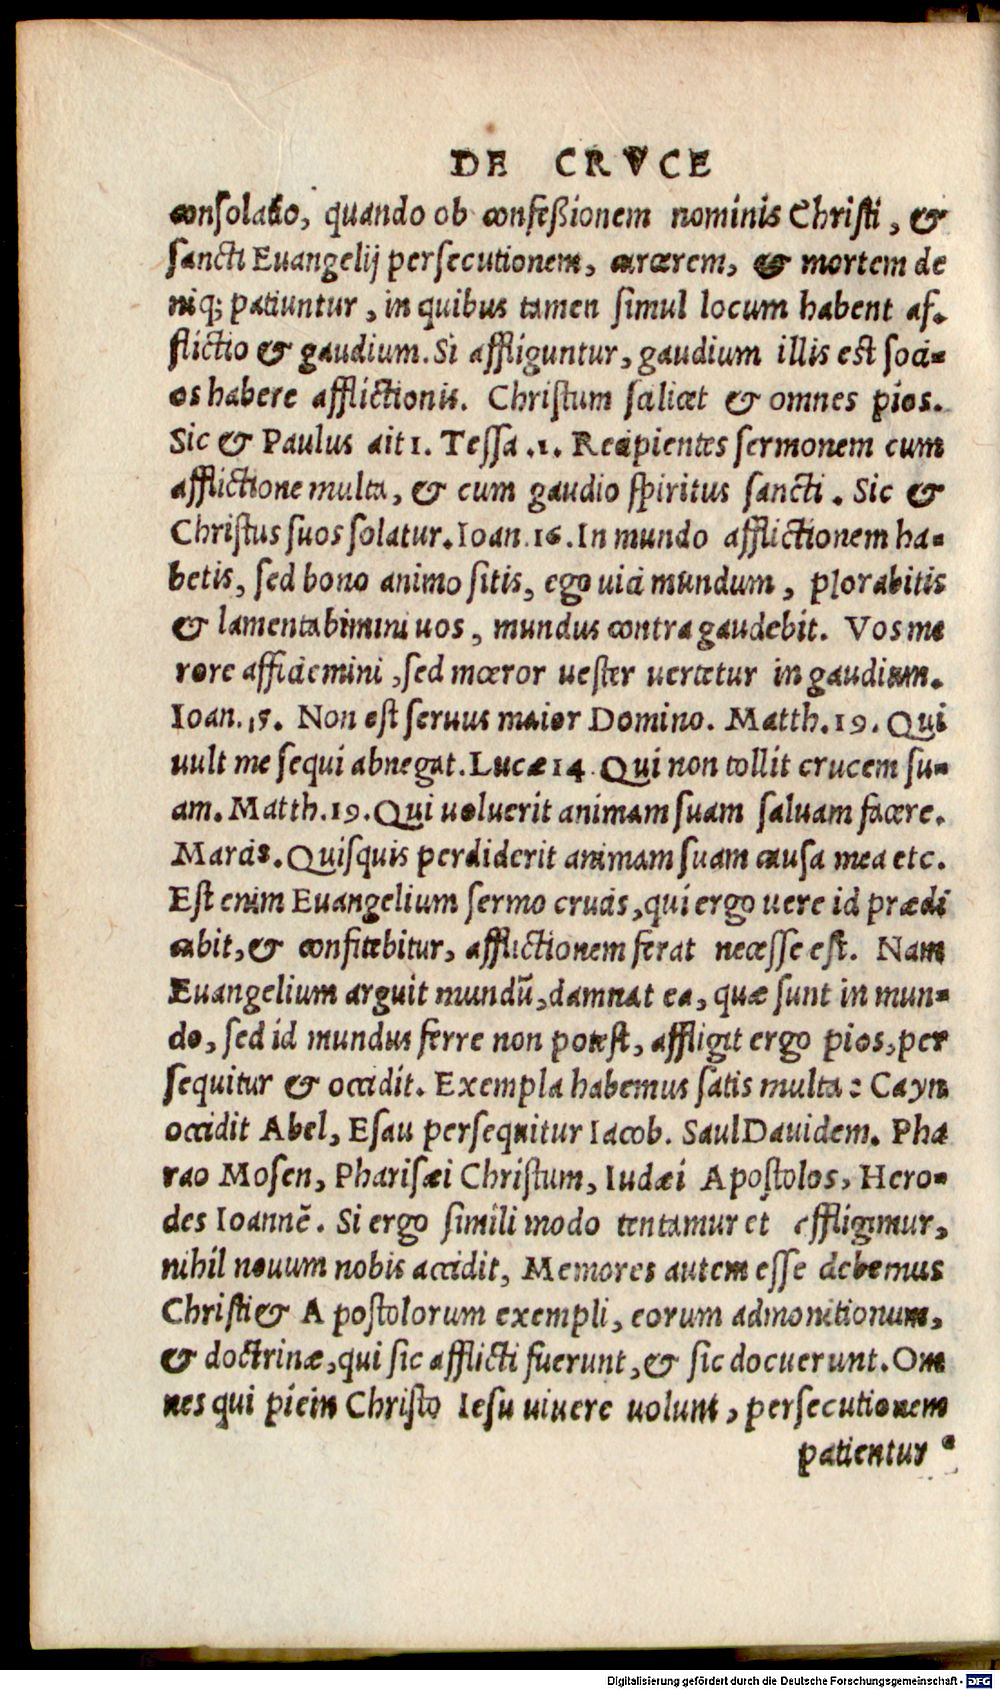 DE CRVCE
consolatio, quando ob confeßionem nominis Christi, &
sancti Euangelij persecutionem, carcerem, & mortem de
niq; patiuntur, in quibus tamen simul locum habent af-
flictio & gaudium. Si affliguntur, gaudium illis est soci-
os habere afflictionis. Christum scilicet & omnes pios.
Sic & Paulus ait 1. Tessa .1. Recipientes sermonem cum
afflictione multa, & cum gaudio spiritus sancti. Sic &
Christus suos solatur. Ioan. 16. In mundo afflictionem ha-
betis, sed bono animo sitis, ego uici mundum, plorabitis
& lamentabimini uos, mundus contra gaudebit. Vos me
rore afficiemini, sed mœror uester uertetur in gaudium.
Ioan. 15. Non est seruus maior Domino. Matth. 19. Qui
uult me sequi abnegat. Lucæ 14. Qui non tollit crucem su-
am. Matth. 19. Qui uoluerit animam suam saluam facere.
Marci 8. Quisquis perdiderit animam suam causa mea etc.
Est enim Euangelium sermo crucis, qui ergo uere id prædi
cabit, & confitebitur, afflictionem ferat necesse est. Nam
Euangelium arguit mundũ, damnat ea, quæ sunt in mun-
do, sed id mundus ferre non potest, affligit ergo pios, per
sequitur & occidit. Exempla habemus satis multa: Cayn
occidit Abel, Esau persequitur Iacob. Saul Dauidem. Pha
rao Mosen, Pharisæi Christum, Iudæi Apostolos, Hero-
des Ioannẽ. Si ergo simili modo tentamur et effligimur,
nihil nouum nobis accidit, Memores autem esse debemus
Christi & Apostolorum exempli, eorum admonitionum,
& doctrinæ, qui sic afflicti fuerunt, & sic docuerunt. Om
nes qui pie in Christo Iesu uiuere uolunt, persecutionem
patientur
Digitalisierung gefördert durch die Deutsche Forschungsgemeinschaft - DFG